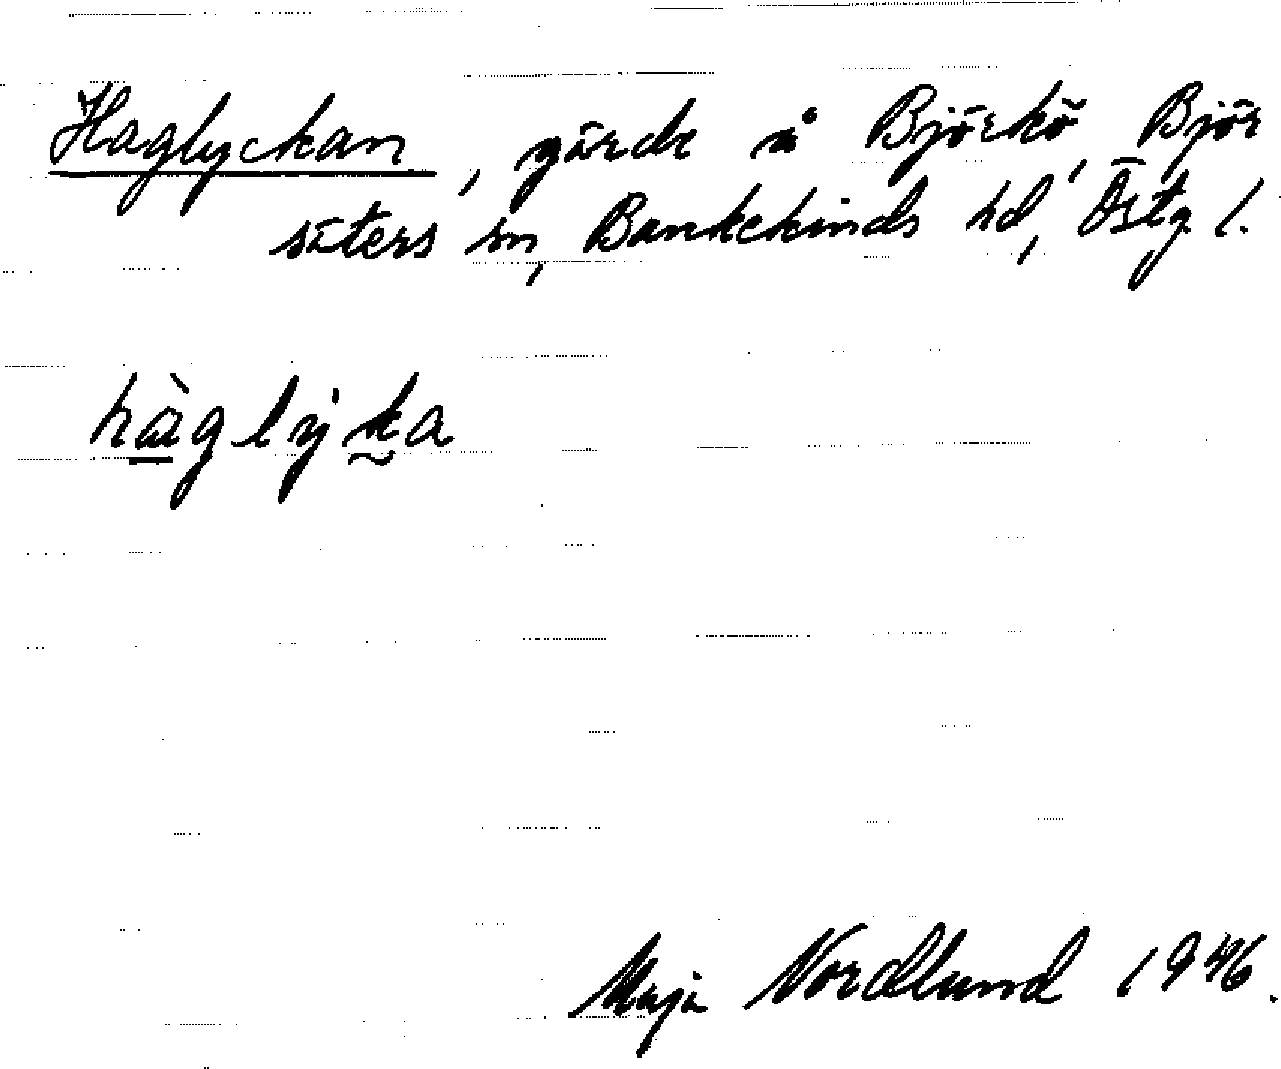 Haglyckan, gärde å Björkö, Björ
säters sn, Bankekinds hd, Östg l.
hàglyka
Maja Nordlund 1946.